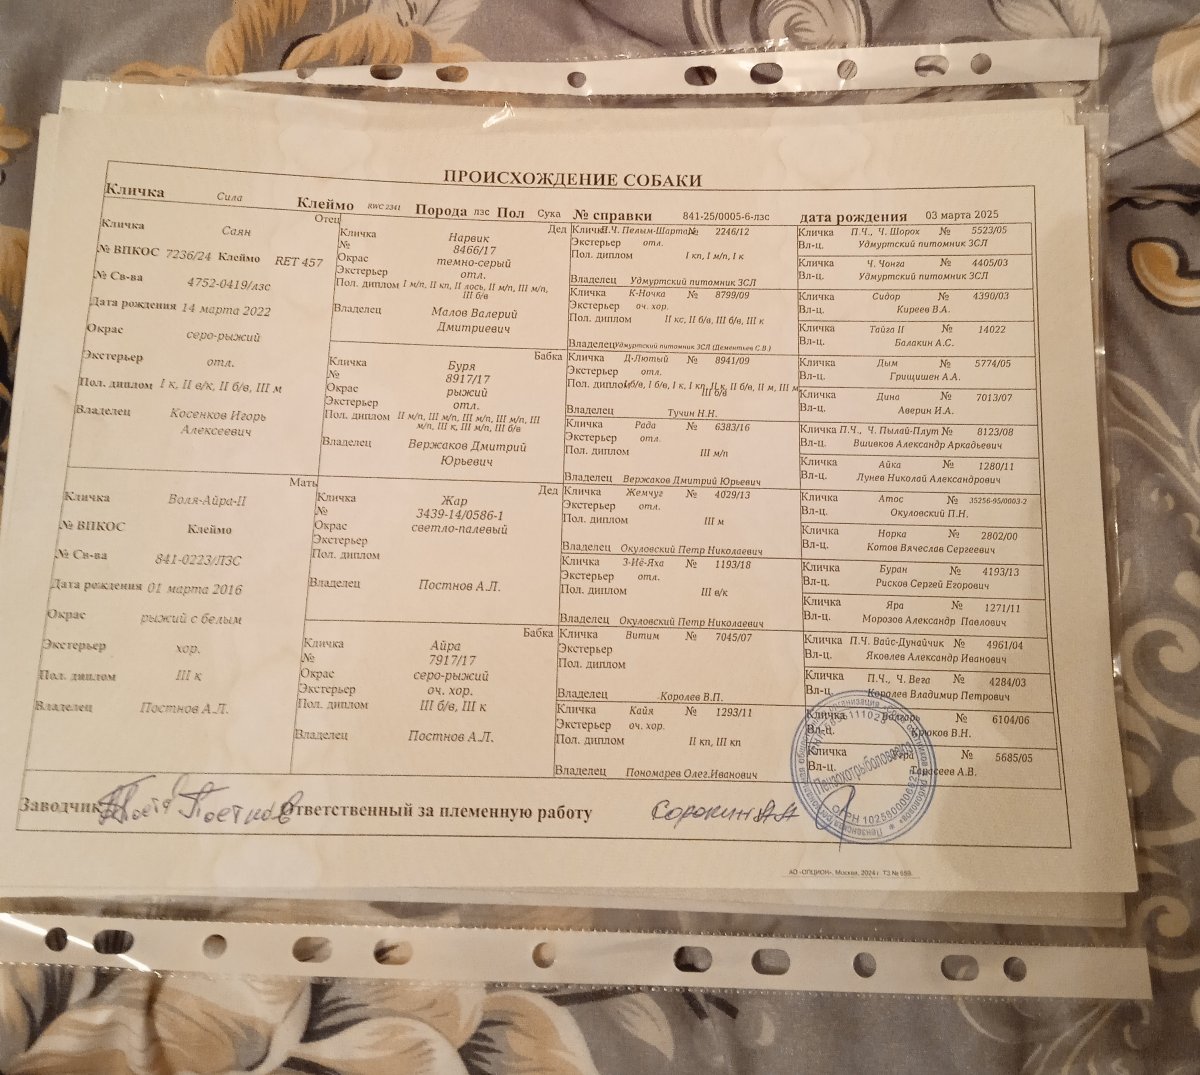 ПРОИСХОЖДЕНИЕ СОБАКИ
Кличка Сила Клеймо RWC 2341 Порода лзс Пол Сука № справки 841-25/0005-6-лзс дата рождения 03 марта 2025
Отец
Кличка Саян
№ ВПКОС 7236/24 Клеймо RET 457
№ Св-ва 4752-0419/лзс
Дата рождения 14 марта 2022
Окрас серо-рыжий
Экстерьер отл.
Пол. диплом I к, II в/к, II б/в, III м
Владелец Косенков Игорь
Алексеевич
Мать
Кличка Воля-Айра-II
№ ВПКОС Клеймо
№ Св-ва 841-0223/ЛЗС
Дата рождения 01 марта 2016
Окрас рыжий с белым
Экстерьер хор.
Пол. диплом III к
Владелец Постнов А.Л.
Дед
Кличка Нарвик
№ 8466/17
Окрас темно-серый
Экстерьер отл.
Пол. диплом I м/п, II кп, II лось, II м/п, III м/п,
III б/в
Владелец Малов Валерий
Дмитриевич
Бабка
Кличка Буря
№ 8917/17
Окрас рыжий
Экстерьер отл.
Пол. диплом II м/п, III м/п, III м/п, III м/п, III
м/п, III к, III м/п, III б/в
Владелец Вержаков Дмитрий
Юрьевич
Дед
Кличка Жар
№ 3439-14/0586-1
Окрас светло-палевый
Экстерьер
Пол. диплом
Владелец Постнов А.Л.
Бабка
Кличка Айра
№ 7917/17
Окрас серо-рыжий
Экстерьер оч. хор.
Пол. диплом III б/в, III к
Владелец Постнов А.Л.
Кличка П.Ч. Пелым-Шарта № 2246/12
Экстерьер отл.
Пол. диплом I кп, I м/п, I к
Владелец Удмуртский питомник ЗСЛ
Кличка К-Ночка № 8799/09
Экстерьер оч. хор.
Пол. диплом II кс, II б/в, III б/в, III к
Владелец Удмуртский питомник ЗСЛ (Дементьев С.В.)
Кличка Д-Лютый № 8941/09
Экстерьер отл.
Пол. диплом I б/в, I б/в, I к, I кп, II к, II б/в, II м, III м,
III б/в
Владелец Тучин Н.Н.
Кличка Рада № 6383/16
Экстерьер отл.
Пол. диплом III м/п
Владелец Вержаков Дмитрий Юрьевич
Кличка Жемчуг № 4029/13
Экстерьер отл.
Пол. диплом III м
Владелец Окуловский Петр Николаевич
Кличка З-Иё-Яха № 1193/18
Экстерьер отл.
Пол. диплом III в/к
Владелец Окуловский Петр Николаевич
Кличка Витим № 7045/07
Экстерьер
Пол. диплом
Владелец Королев В.П.
Кличка Кайя № 1293/11
Экстерьер оч. хор.
Пол. диплом II кп, III кп
Владелец Пономарев Олег.Иванович
Кличка П.Ч., Ч. Шорох № 5523/05
Вл-ц. Удмуртский питомник ЗСЛ
Кличка Ч. Чонга № 4405/03
Вл-ц. Удмуртский питомник ЗСЛ
Кличка Сидор № 4390/03
Вл-ц. Киреев В.А.
Кличка Тайга II № 14022
Вл-ц. Балакин А.С.
Кличка Дым № 5774/05
Вл-ц. Грищишен А.А.
Кличка Дина № 7013/07
Вл-ц. Аверин И.А.
Кличка П.Ч., Ч. Пылай-Плут № 8123/08
Вл-ц. Вшивков Александр Аркадьевич
Кличка Айка № 1280/11
Вл-ц. Лунев Николай Александрович
Кличка Атос № 35256-95/0003-2
Вл-ц. Окуловский П.Н.
Кличка Норка № 2802/00
Вл-ц. Котов Вячеслав Сергеевич
Кличка Буран № 4193/13
Вл-ц. Рисков Сергей Егорович
Кличка Яра № 1271/11
Вл-ц. Морозов Александр Павлович
Кличка П.Ч. Вайс-Дунайчик № 4961/04
Вл-ц. Яковлев Александр Иванович
Кличка П.Ч., Ч. Вега № 4284/03
Вл-ц. Королев Владимир Петрович
Кличка Волгарь № 6104/06
Вл-ц. Крюков В.Н.
Кличка № 5685/05
Вл-ц. Тарасеев А.В.
Заводчик Постнов Ответственный за племенную работу Сорокин А.А
Пензохотрыболовсоюз
АО «ОПЦИОН», Москва, 2024 г. ТЗ № 659.